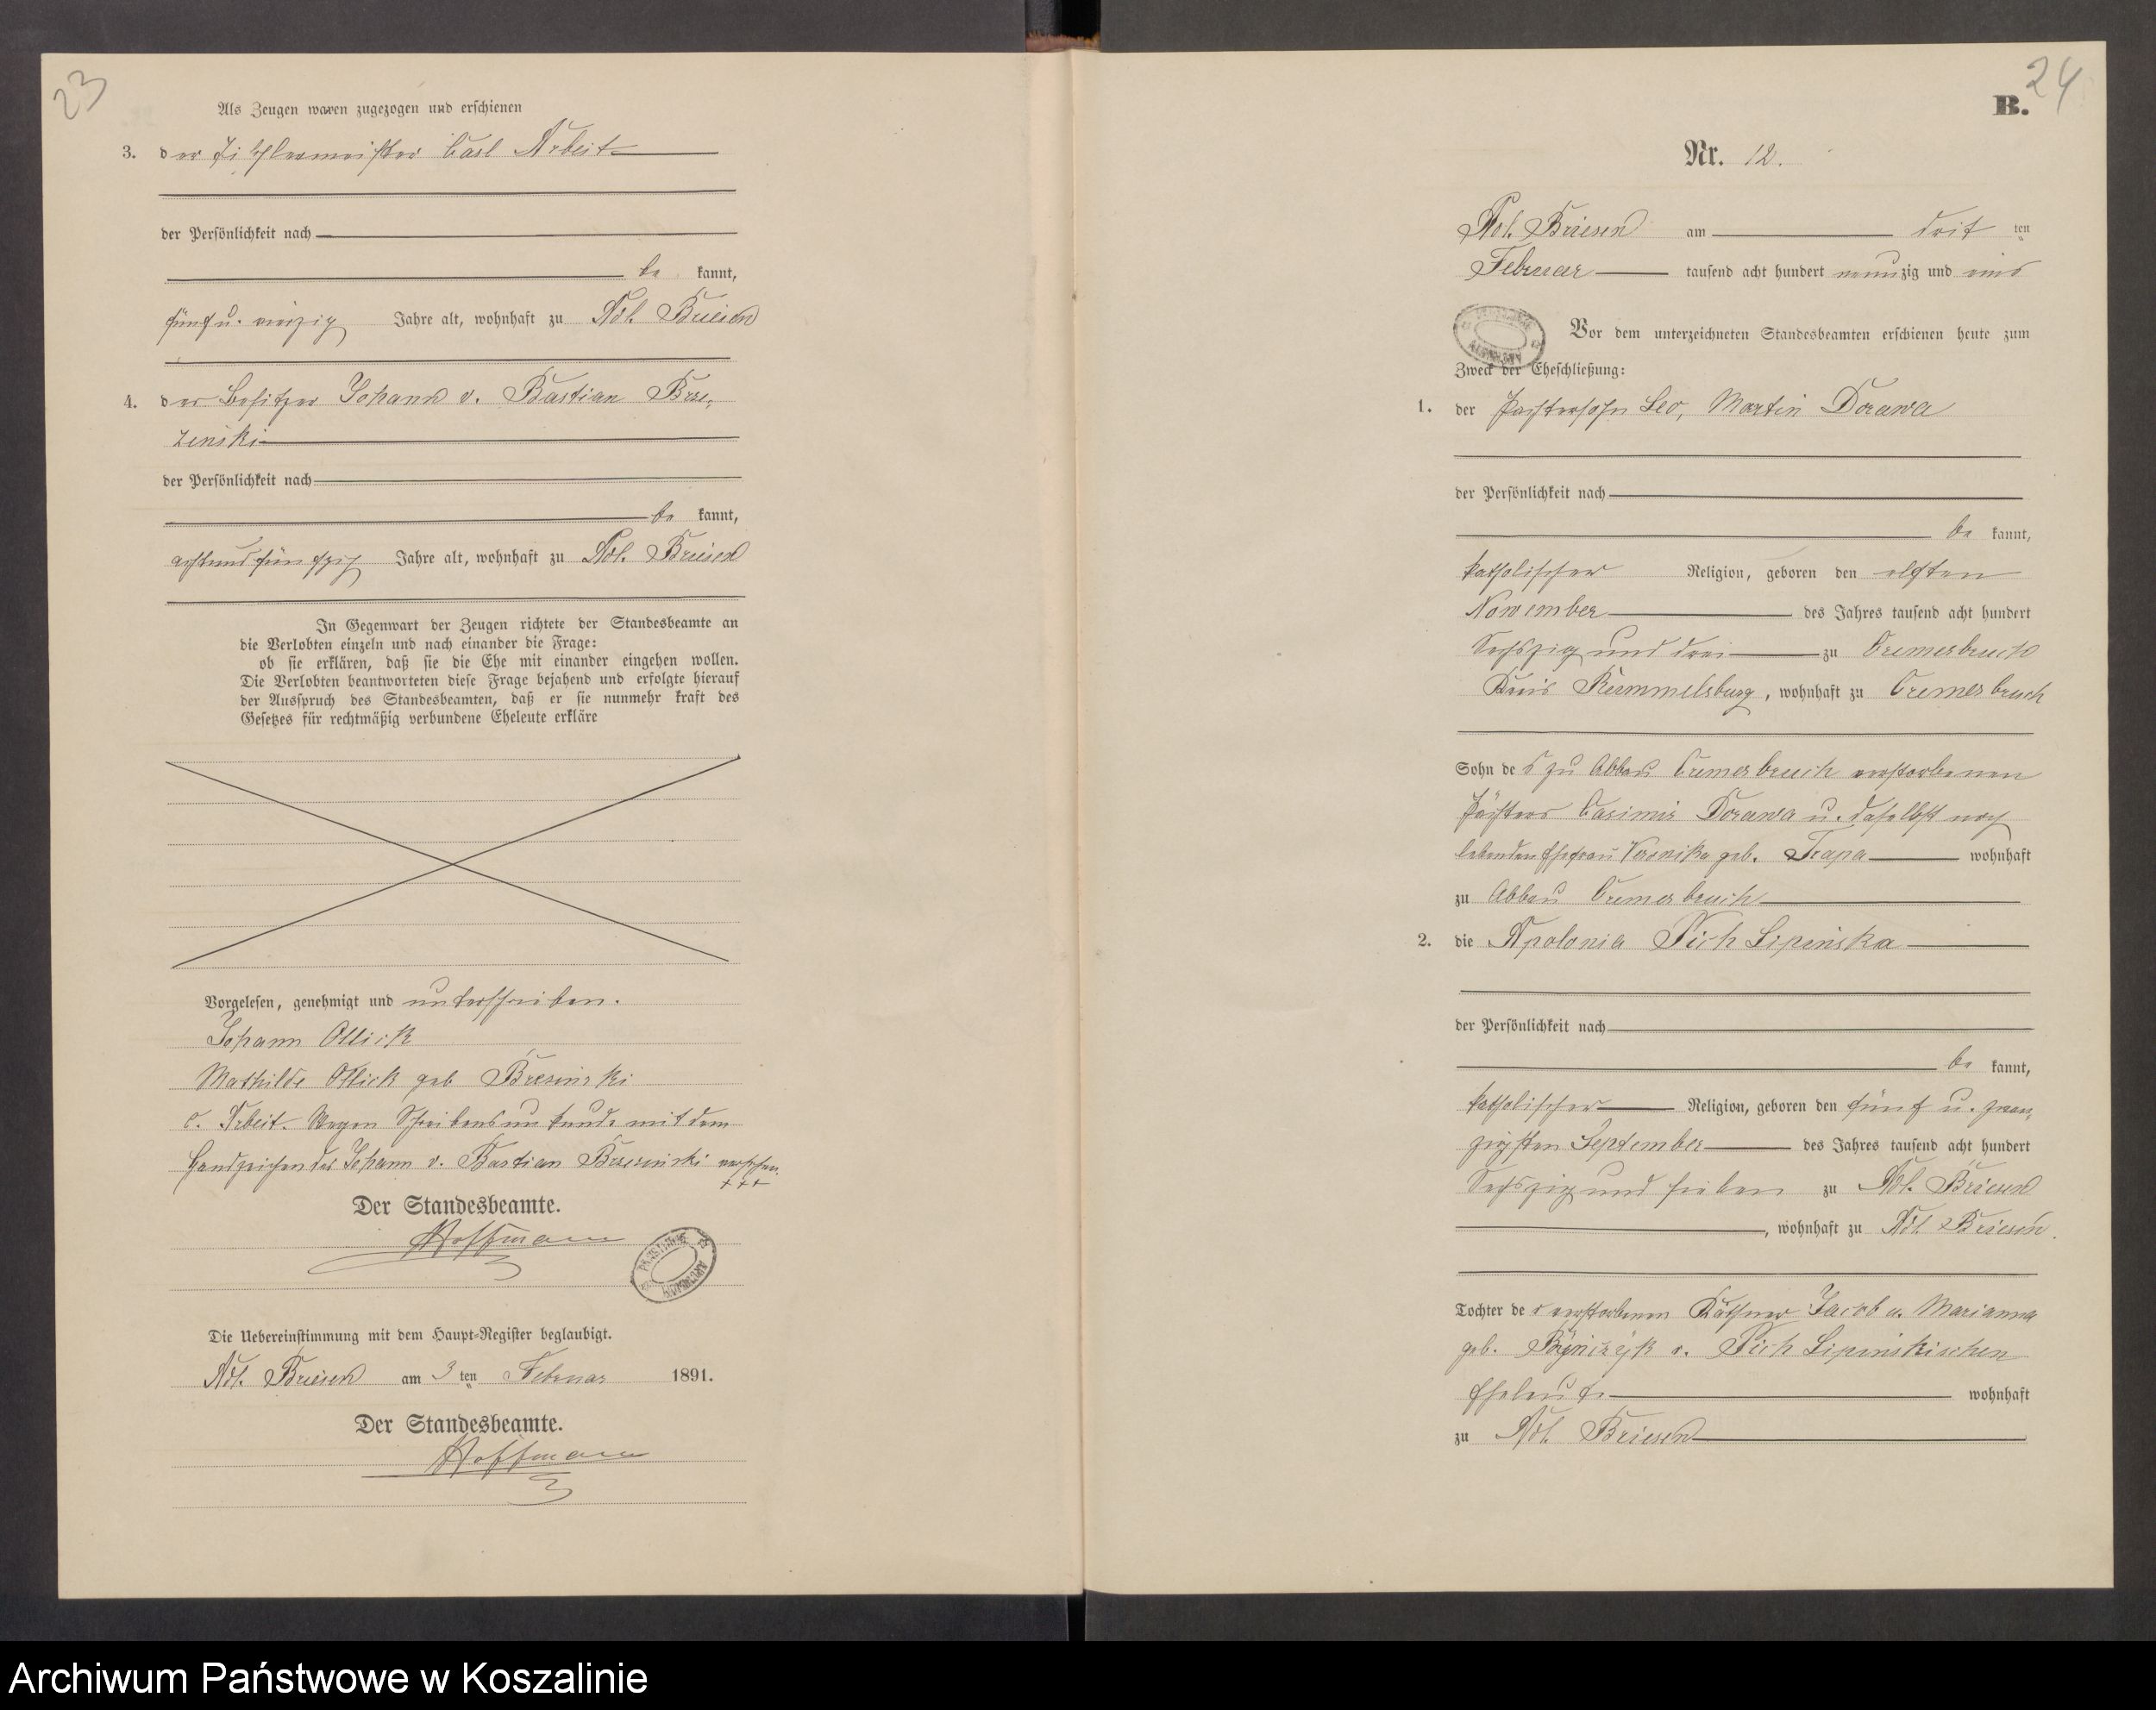 23
Als Zeugen waren zugezogen und erschienen
3. der Tischlermeister Carl Arbeit
der Persönlichkeit nach
be kannt,
fünf u. vierzig Jahre alt, wohnhaft zu Adl. Briesen
4. der Besitzer Johann v. Bastian Brze,
zinski
der Persönlichkeit nach
be kannt,
achtundfünfzig Jahre alt, wohnhaft zu Adl. Briesen
In Gegenwart der Zeugen richtete der Standesbeamte an
die Verlobten einzeln und nach einander die Frage:
ob sie erklären, daß sie die Ehe mit einander eingehen wollen.
Die Verlobten beantworteten diese Frage bejahend und erfolgte hierauf
der Ausspruch des Standesbeamten, daß er sie nunmehr kraft des
Gesetzes für rechtmäßig verbundene Eheleute erkläre
Vorgelesen, genehmigt und unterschrieben.
Johann Ollick
Mathilde Ollick geb Bresinski
C. Arbeit. Wegen Schreibensunkunde mit dem
Handzeichen des Johann v. Bastian Brzezinski versehen.
+++
Der Standesbeamte.
Hoffmann
Die Uebereinstimmung mit dem Haupt-Register beglaubigt.
Adl. Briesen am 3 ten Februar 1891.
Der Standesbeamte.
Hoffmann
24
B.
Nr. 12.
Adl. Briesen am drit ten
Februar tausend acht hundert neunzig und eins
Vor dem unterzeichneten Standesbeamten erschienen heute zum
Zweck der Eheschließung:
1. der Leo, Martin Dorawa
der Persönlichkeit nach
be kannt,
katholischer Religion, geboren den elften
November des Jahres tausend acht hundert
Sechszig und drei zu Cremerbruch
Kreis Rummelsburg, wohnhaft zu Cremerbruch
Sohn des zu Abbau Cremerbruch verstorbenen
Casimir Dorawa u. daselbst noch
lebenden Ehefrau Veronika geb. Trapa wohnhaft
zu Abbau Cremerbruch
2. die Apolonia Pich Lipinska
der Persönlichkeit nach
be kannt,
katholischer Religion, geboren den fünf u. zwan,
zigsten September des Jahres tausend acht hundert
Sechszig und sieben zu Adl. Briesen
, wohnhaft zu Adl. Briesen.
Tochter der verstorbenen Käthner Jacob u. Marianna
geb. v. Pich Lipinskischen
Eheleute wohnhaft
zu Adl. Briesen
Archiwum Państwowe w Koszalinie